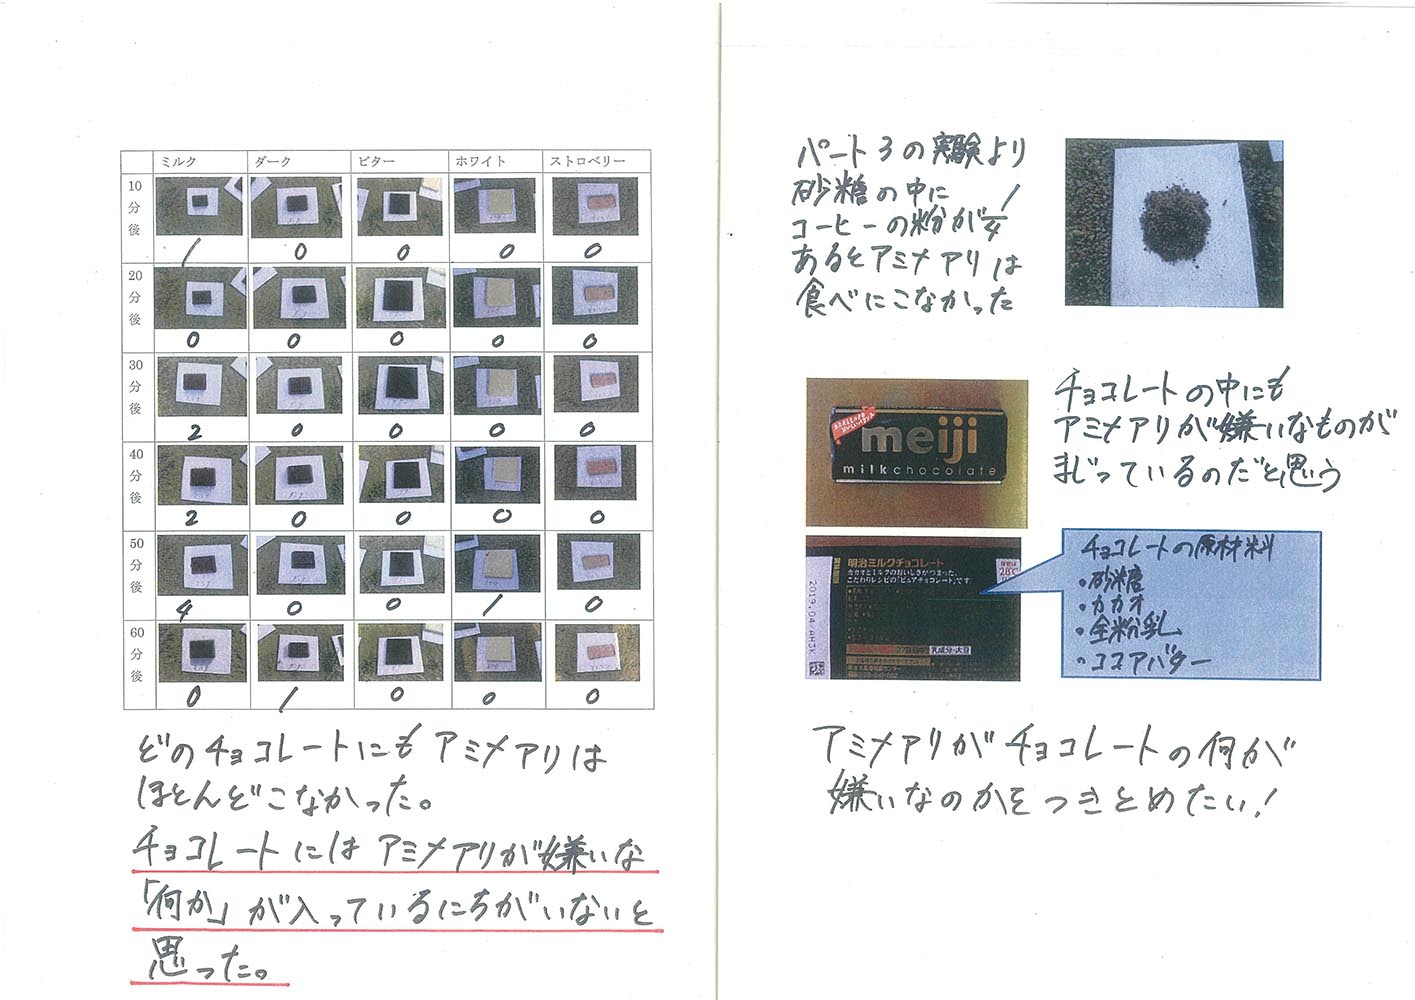 ミルク ダーク ビター ホワイト ストロベリー
10分後
1 0 0 0 0
20分後
0 0 0 0 0
30分後
2 0 0 0 0
40分後
2 0 0 0 0
50分後
4 0 0 1 0
60分後
0 1 0 0 0
どのチョコレートにもアミメアリは
ほとんどこなかった。
チョコレートにはアミメアリが嫌いな
「何か」が入っているにちがいないと
思った。
パート3の実験より
砂糖の中に
コーヒーの粉が
あるとアミメアリは
食べにこなかった
meiji
milk chocolate
チョコレートの中にも
アミメアリが嫌いなものが
まじっているのだと思う
明治ミルクチョコレート
カカオとミルクのおいしさがつまった、
こだわりレシピの「ピュアチョコレート」です
28℃
2019.04/AH3K
27品目中
乳成分・大豆
チョコレートの原材料
・砂糖
・カカオ
・全粉乳
・ココアバター
アミメアリがチョコレートの何が
嫌いなのかをつきとめたい!